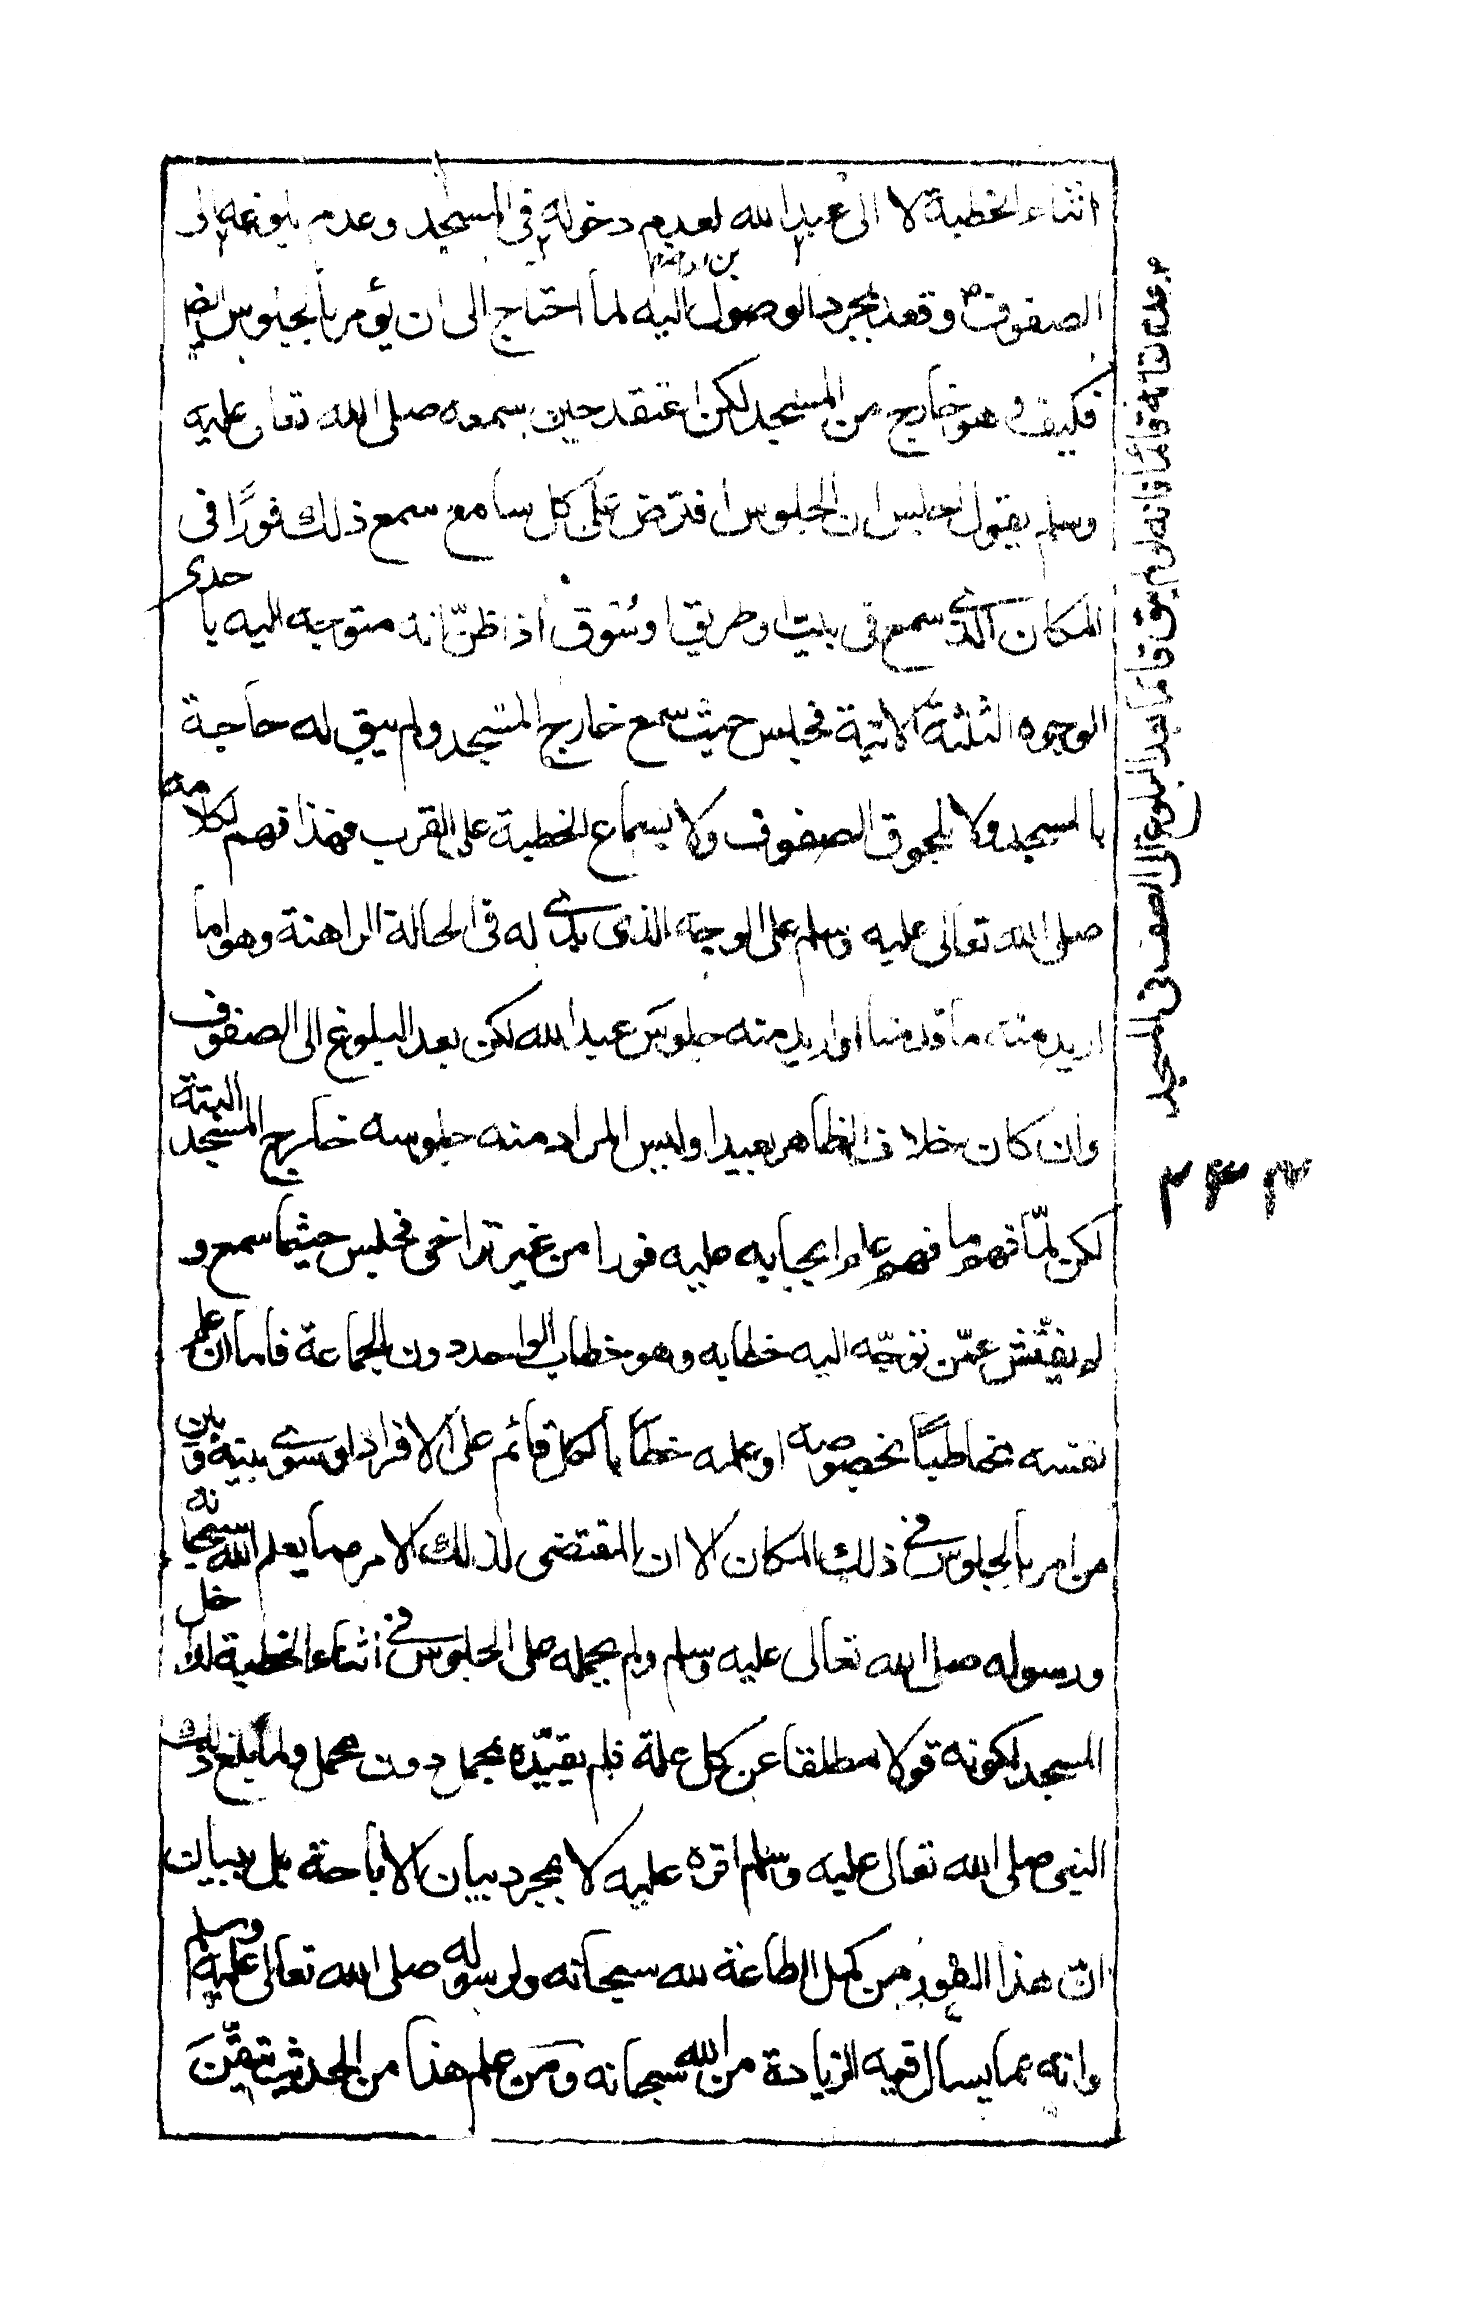 اثناء الخطبة لا الى عبدالله لعدم دخوله في المسجد وعدم بلوغه الى
بن رواحة
الصفوف وقعد بمجرد الوصول اليه لما احتاج الى ان يؤمر بالجلوس ايضا
فكيف وهو خارج من المسجد لكن اعتقد حين سمعه صلى الله تعالى عليه
وسلم يقول اجلس ان الجلوس افترض على كل سامع سمع ذلك فورًا في
المكان الذي سمع في بيت او طريق او سُوق اذا ظنّ انه متوجه اليه باحدى
الوجوه الثلثة الاتية فجلس حيث سمع خارج المسجد ولم يبق له حاجة
بالمسجد ولا بلحوق الصفوف ولا بسماع الخطبة على القرب فهذا فهم لكلامه
صلى الله تعالى عليه وسلم على الوجه الذي بدى له في الحالة الراهنة وهو اما
اريد منه ما قدمنا او اريد منه جلوس عبدالله لكن بعد البلوغ الى الصفوف
وان كان خلاف الظاهر بعيدا وليس المراد منه جلوسه خارج المسجد البتة
لكن لمّا فهم ما فهم علم ايجابه عليه فورا من غير تراخى فجلس حيثما سمع و
لم يفتّش عمّن توجّه اليه خطابه وهو خطاب الواحد دون الجماعة فاما ان علم
نفسه مخاطبًا بخصوصه او علمه خطابا لكل قائم على الافراد او سوى بينه وبين
من امر بالجلوس في ذلك المكان الا ان المقتضى لذلك الامر مما يعلم الله سبحانه
ورسوله صلى الله تعالى عليه وسلم ولم يحمله على الجلوس في اثناء الخطبة داخل
المسجد لكونه قولا مطلقا عن كل علة فلم يقيّده بمحمل دون محمل ولما بلغ ذلك
النبي صلى الله تعالى عليه وسلم اقره عليه لا بمجرد بيان الاباحة بل ببيان
ان هذا الطور من كمل الطاعة لله سبحانه ولرسوله صلى الله تعالى عليه وسلم
وانه مما يسال فيه الزيادة من الله سبحانه ومن علم هذا من الحديث تيقّن
قائما فانه لو لم يبق قائما بعد البلوغ الى الصف في المسجد
۲۳۳